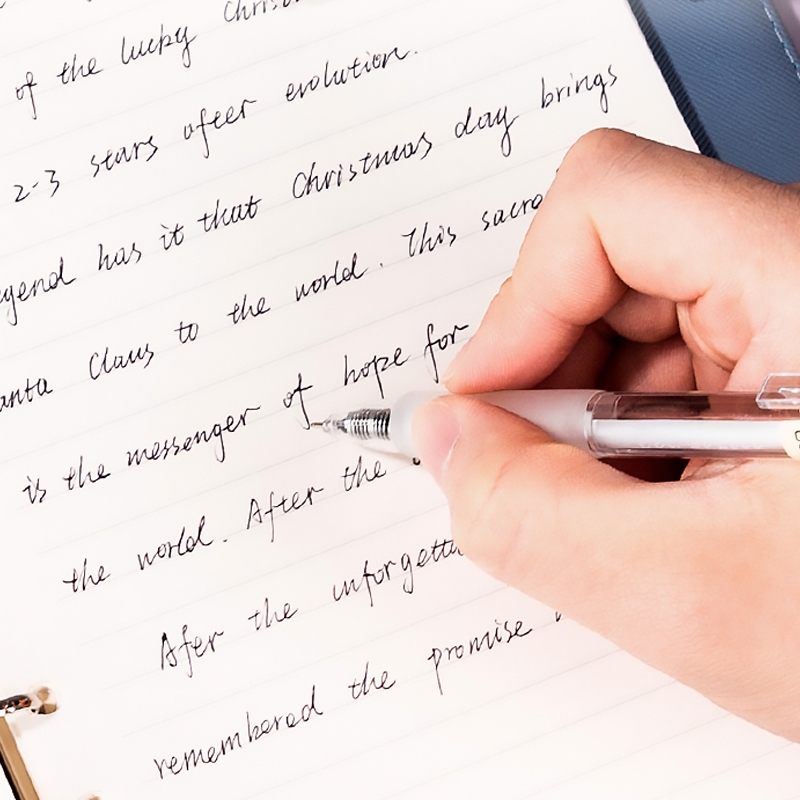 of the lucky Chris
2-3 stars after evolution.
egend has it that Christmas day brings
anta Claus to the world. This sacre
is the messenger of hope for
the world. After the
Afer the unforgetta
remembered the promise